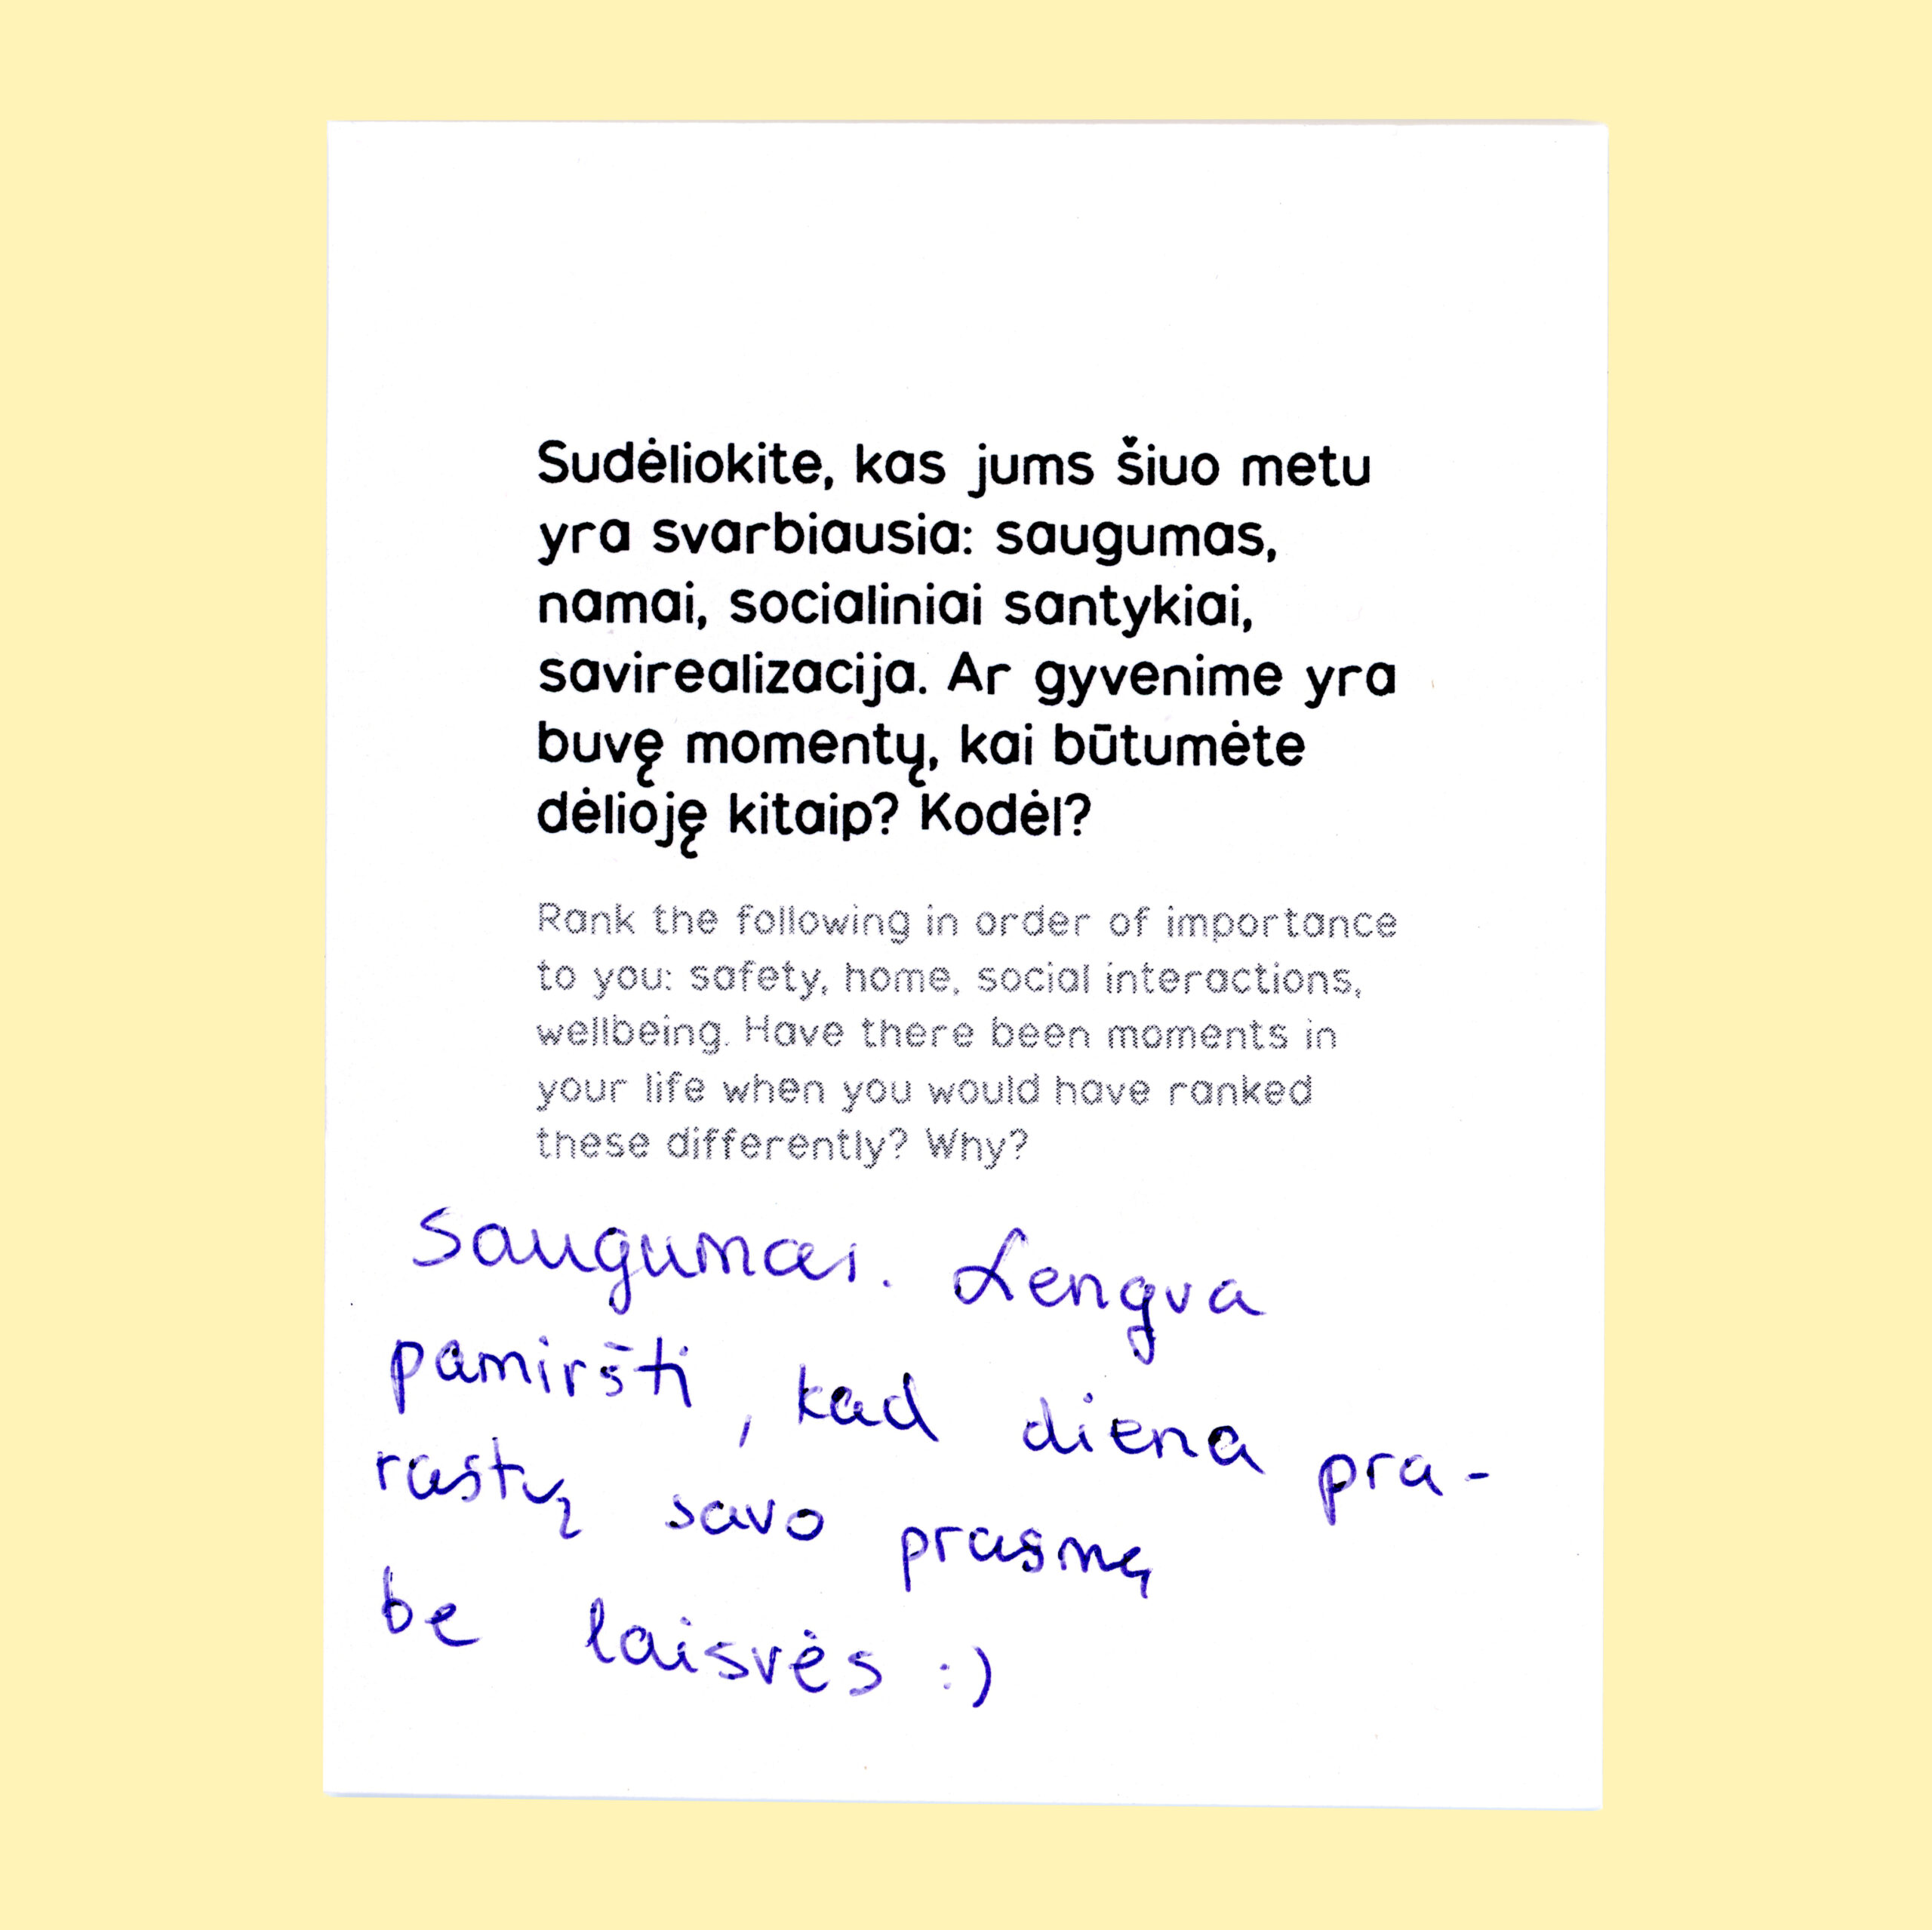 Sudėliokite, kas jums šiuo metu
yra svarbiausia: saugumas,
namai, socialiniai santykiai,
savirealizacija. Ar gyvenime yra
buvę momentų, kai būtumėte
dėlioję kitaip? Kodėl?
Rank the following in order of importance
to you: safety, home, social interactions,
wellbeing. Have there been moments in
your life when you would have ranked
these differently? Why?
Saugumas. Lengva
pamiršti, kad diena pra-
rastų savo prasmę
be laisvės :)